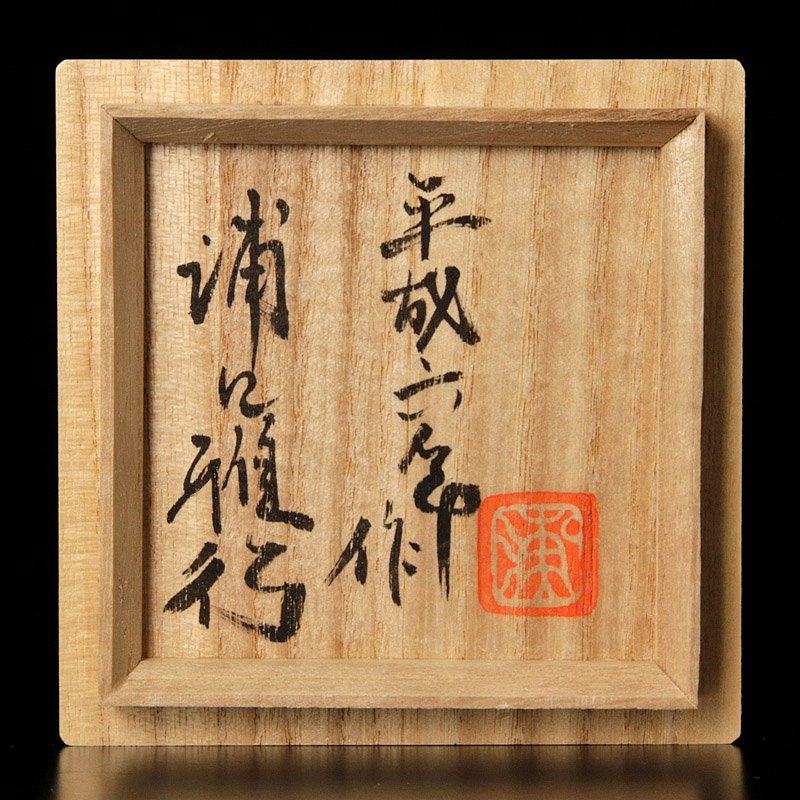 平成六年
作
浦口雅行
浦